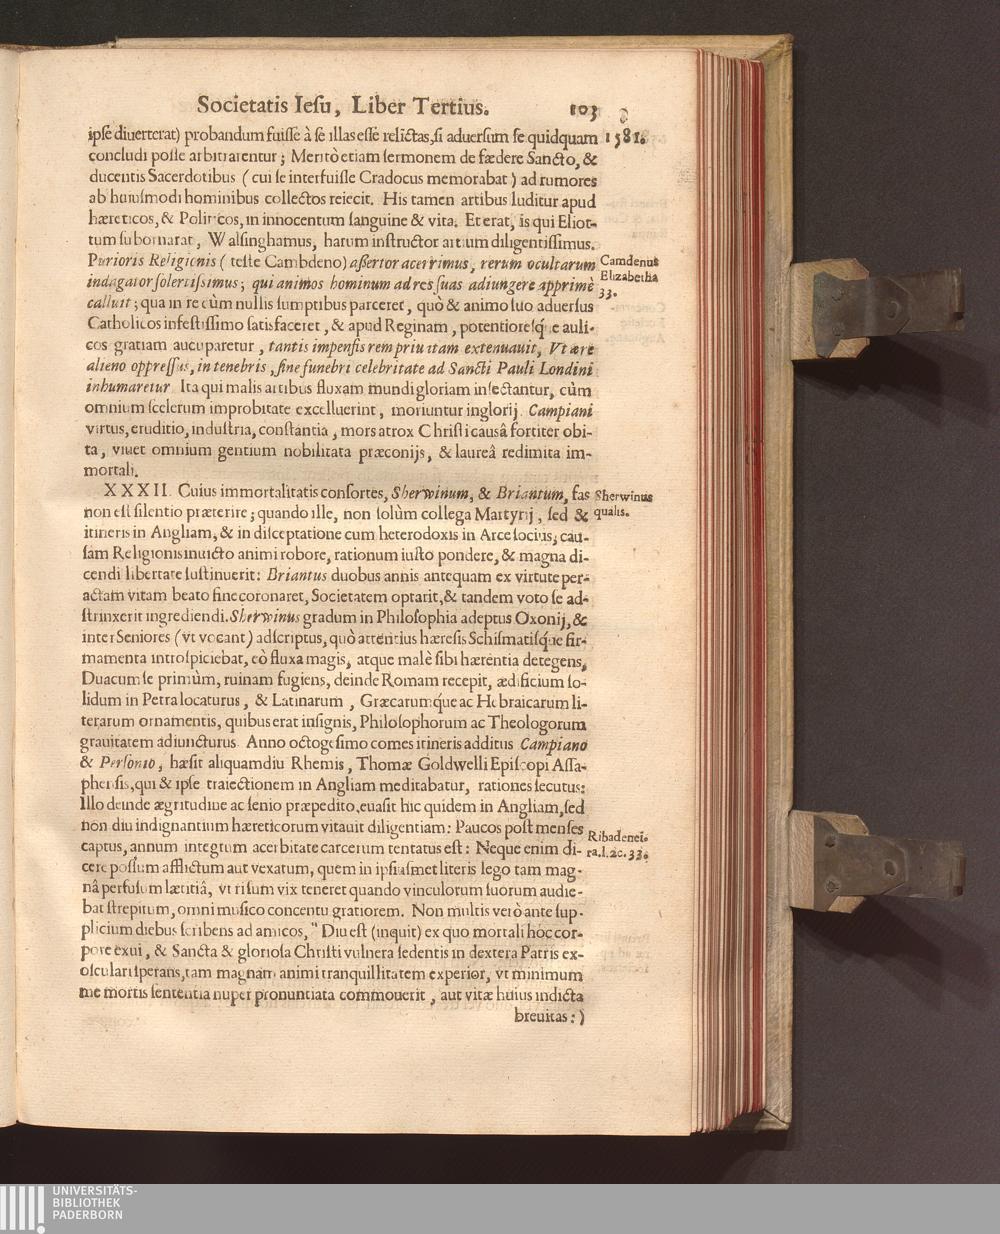 Societatis Iesu, Liber Tertius. 103
ipse diuerterat) probandum fuisse à se illas esse relictas, si aduersum se quidquam
1581.
concludi posse arbitrarentur; Meritò etiam sermonem de fædere Sancto, &
ducentis Sacerdotibus (cui se interfuisse Cradocus memorabat) ad rumores
ab huiusmodi hominibus collectos reiecit. His tamen artibus luditur apud
hæreticos, & Politicos, in innocentum sanguine & vita. Et erat, is qui Eliot-
tum subornarat, Walsinghamus, harum instructor artium diligentissimus.
Purioris Religionis (teste Cambdeno) assertor acerrimus, rerum ocultarum
Camdenus
Elizabetha
33.
indagator solertissimus; qui animos hominum ad res suas adiungere apprimè
calluit; qua in re cùm nullis sumptibus parceret, quò & animo suo aduersus
Catholicos infestissimo satisfaceret, & apud Reginam, potentioresq́ue auli-
cos gratiam aucuparetur, tantis impensis rem priuatam extenuauit, Vt ære
alieno oppressus, in tenebris, sine funebri celebritate ad Sancti Pauli Londini
inhumaretur Ita qui malis artibus fluxam mundi gloriam insectantur, cùm
omnium scelerum improbitate excelluerint, moriuntur inglorij. Campiani
virtus, eruditio, industria, constantia, mors atrox Christi causâ fortiter obi-
ta, viuet omnium gentium nobilitata præconijs, & laureâ redimita im-
mortali.
XXXII. Cuius immortalitatis consortes, Sherwinum, & Briantum, fas
Sherwinus
qualis.
non est silentio præterire; quando ille, non solùm collega Martyrij, sed &
itineris in Angliam, & in disceptatione cum heterodoxis in Arce socius; cau-
sam Religionis inuicto animi robore, rationum iusto pondere, & magna di-
cendi libertate sustinuerit: Briantus duobus annis antequam ex virtute per-
actam vitam beato fine coronaret, Societatem optarit, & tandem voto se ad-
strinxerit ingrediendi. Sherwinus gradum in Philosophia adeptus Oxonij, &
inter Seniores (vt vocant) adscriptus, quò attentius hæresis Schismatisq́ue fir-
mamenta introspiciebat, eò fluxa magis, atque malè sibi hærentia detegens,
Duacum se primùm, ruinam fugiens, deinde Romam recepit, ædificium so-
lidum in Petra locaturus, & Latinarum, Græcarumq́ue ac Hebraicarum li-
terarum ornamentis, quibus erat insignis, Philosophorum ac Theologorum
grauitatem adiuncturus. Anno octogesimo comes itineris additus Campiano
& Personio, hæsit aliquamdiu Rhemis, Thomæ Goldwelli Episcopi Assa-
phensis, qui & ipse traiectionem in Angliam meditabatur, rationes secutus:
Illo deinde ægritudine ac senio præpedito, euasit hic quidem in Angliam, sed
non diu indignantium hæreticorum vitauit diligentiam: Paucos post menses
Ribadenei-
ra. l. 2 c. 33.
captus, annum integrum acerbitate carcerum tentatus est: Neque enim di-
cere possum afflictum aut vexatum, quem in ipsiusmet literis lego tam mag-
nâ perfusum lætitiâ, vt risum vix teneret quando vinculorum suorum audie-
bat strepitum, omni musico concentu gratiorem. Non multis verò ante sup-
plicium diebus scribens ad amicos, " Diu est (inquit) ex quo mortali hòc cor-
pore exui, & Sancta & gloriosa Christi vulnera sedentis in dextera Patris ex-
osculari sperans, tam magnam animi tranquillitatem experior, vt minimum
me mortis sententia nuper pronuntiata commouerit, aut vitæ huius indicta
breuitas:)
UNIVERSITÄTS-
BIBLIOTHEK
PADERBORN